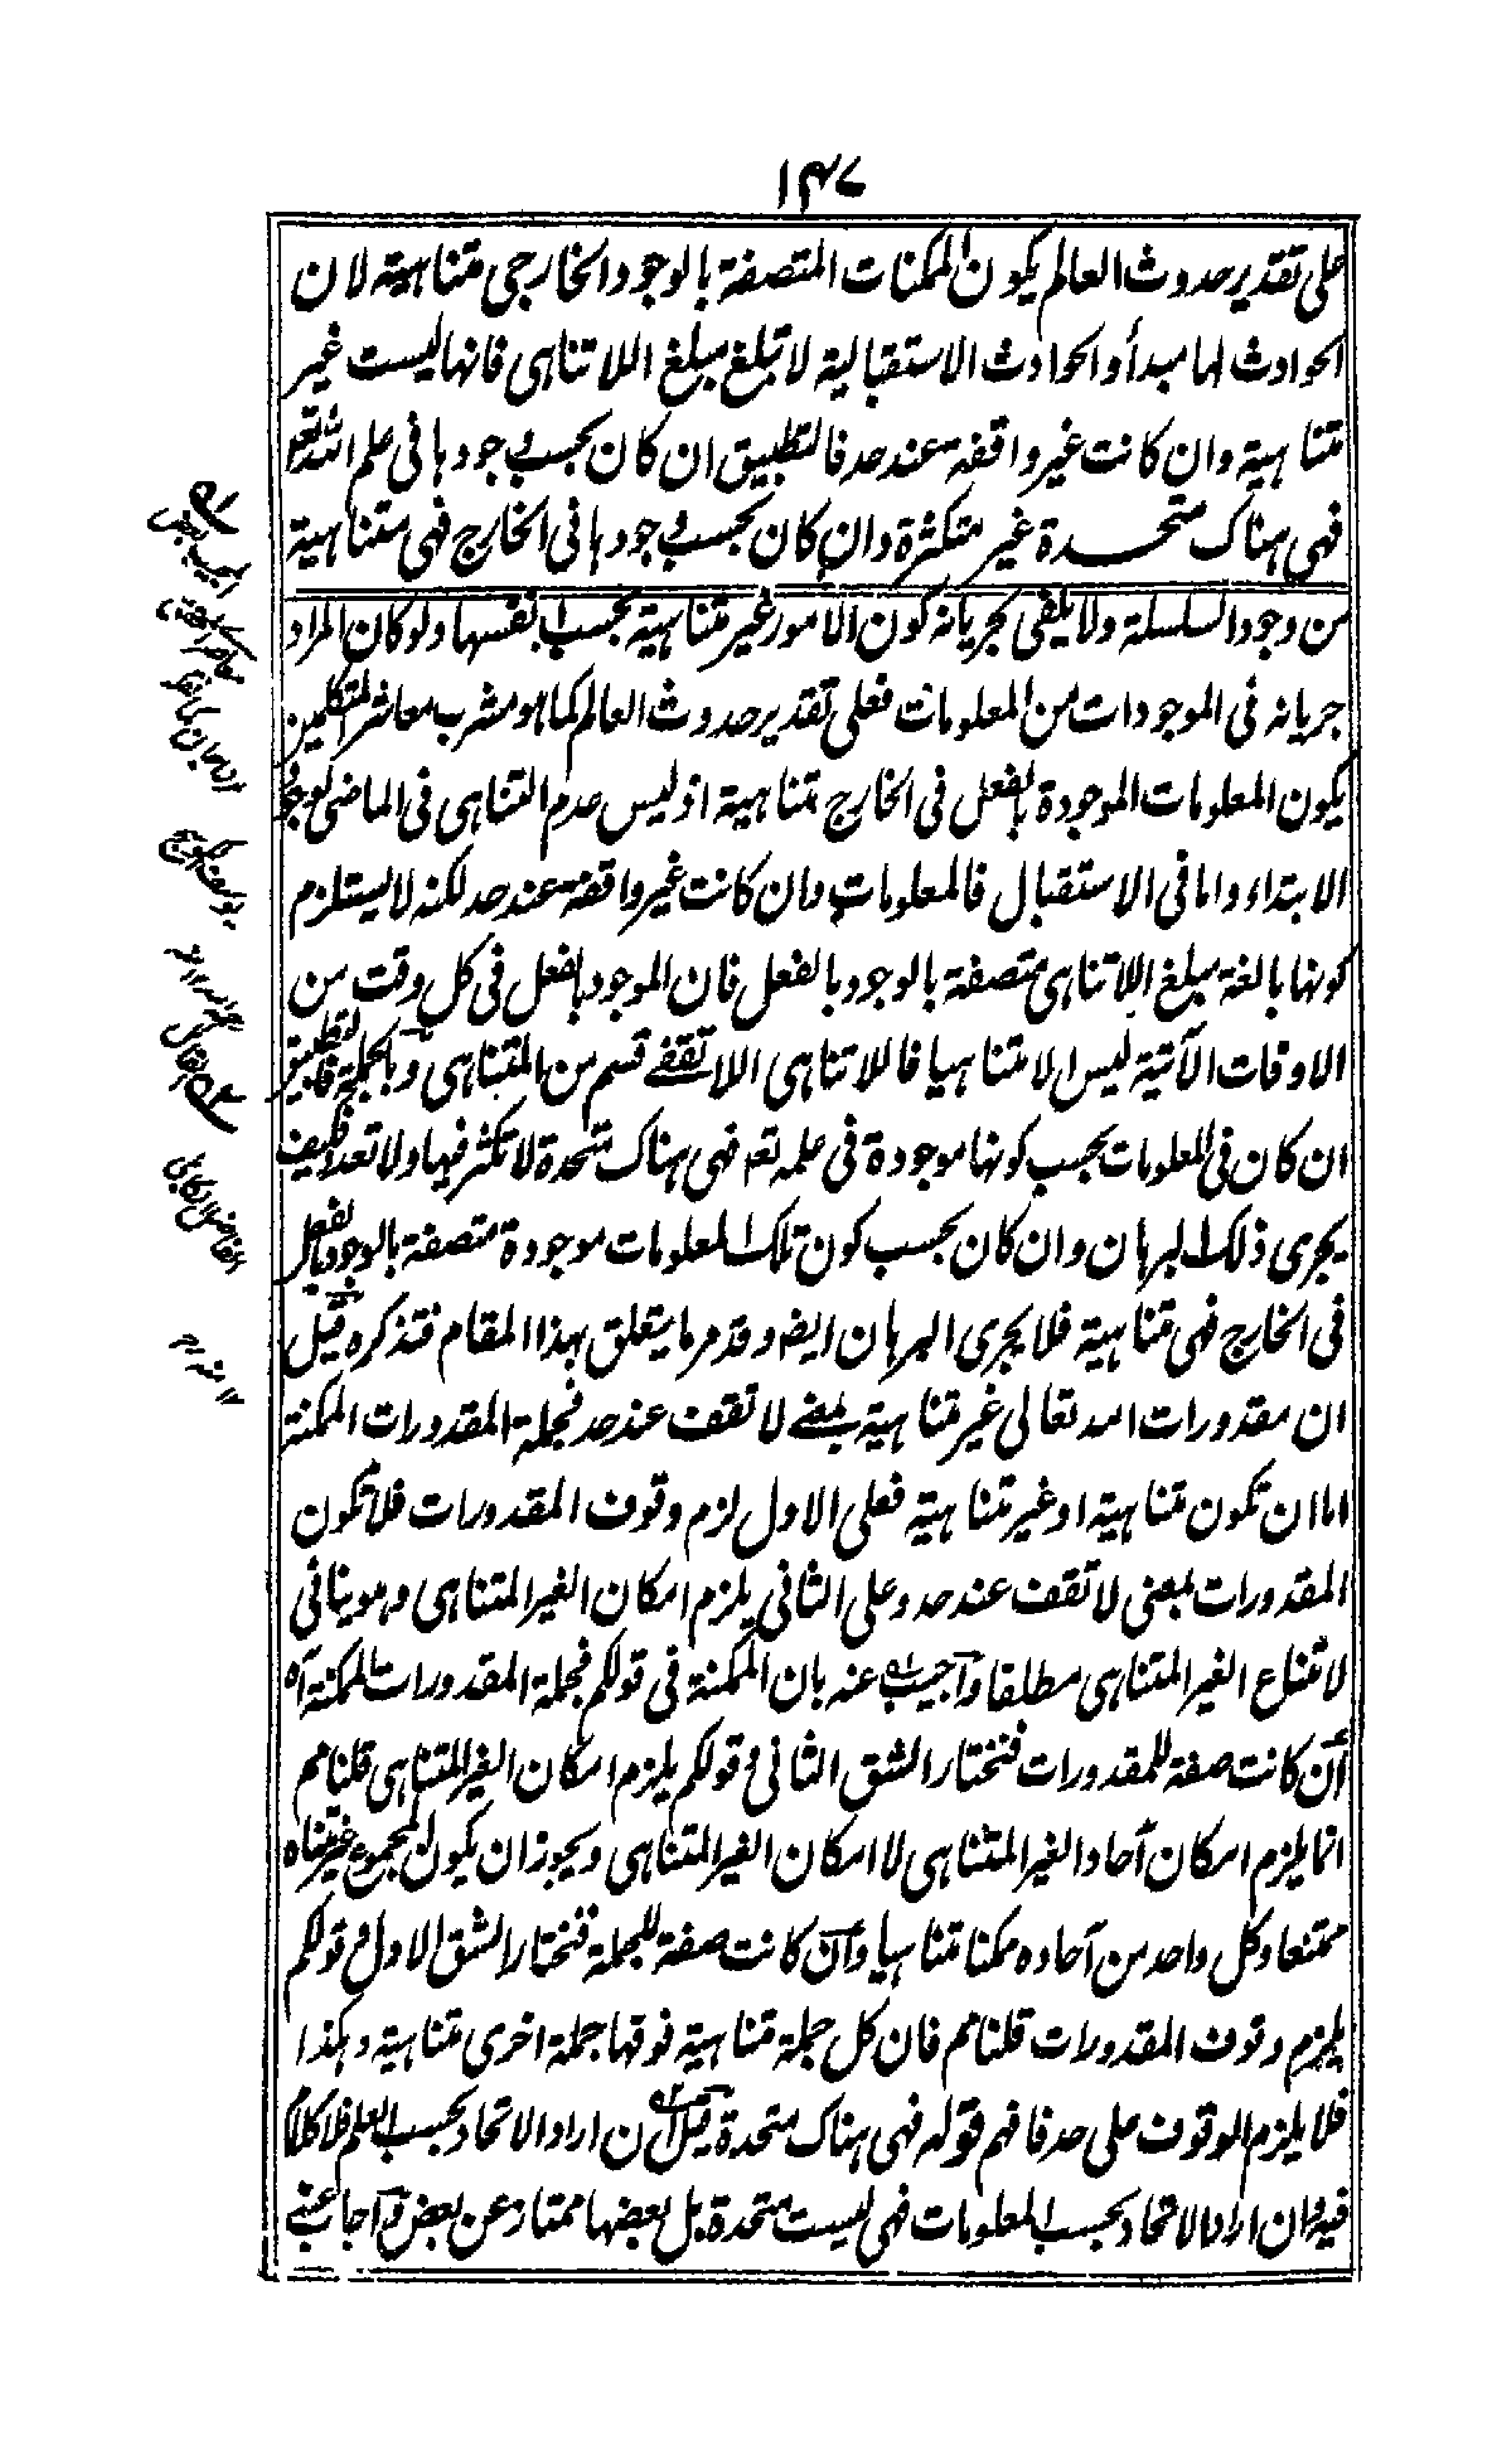 ١٤٧
على تقدير حدوث العالم يكون الممكنات المتصفة بالوجود الخارجي متناهية لان
الحوادث لها مبدأ والحوادث الاستقبالية لا تبلغ مبلغ اللاتناهى فانها ليست غير
متناهية وان كانت غير واقفة عند حد فالتطبيق ان كان بحسب وجودها فى علم الله تعم
فهى هناك متحدة غير متكثرة وان كان بحسب وجودها فى الخارج فهى متناهية
من وجود السلسلة ولا يكفى لجريانه كون الامور غير متناهية بحسب انفسها ولو كان المراد
جريانه فى الموجودات من المعلومات فعلى تقدير حدوث العالم كما هو مشرب معاشر المتكلمين
يكون المعلومات الموجودة بالفعل فى الخارج متناهية اذ ليس عدم التناهى فى الماضى لوجود
الابتداء واما فى الاستقبال فالمعلومات وان كانت غير واقفة عند حد لكنه لا يستلزم
كونها بالغة مبلغ اللاتناهى متصفة بالوجود بالفعل فان الموجود بالفعل فى كل وقت من
الاوقات الآتية ليس لا متناهيا فاللاتناهى اللاتقفے قسم من المتناهى وبالجملة فالتطبيق
ان كان فى المعلومات بحسب كونها موجودة فى علمه تعم فهى هناك متحدة لا تكثر فيها ولا تعدد فكيف
يجرى ذلك البرهان وان كان بحسب كون تلك المعلومات موجودة متصفة بالوجود بالفعل
فى الخارج فهى متناهية فلا يجرى البرهان ايضا وقد مر ما يتعلق بهذا المقام فتذكره قيل
ان مقدورات الله تعالى غير متناهية بمعنے لا تقف عند حد فجملة المقدورات الممكنة
اما ان تكون متناهية او غير متناهية فعلى الاول لزم وقوف المقدورات فلا تكون
المقدورات بمعنى لا تقف عند حد وعلى الثانى يلزم امكان الغير المتناهى وهو ينافى
لامتناع الغير المتناهى مطلقا واجيب عنه بان الممكنة فى قولكم فجملة المقدورات الممكنة آه
ان كانت صفة للمقدورات فنختار الشق الثانى وقولكم يلزم امكان الغير المتناهى قلنا مم
انما يلزم امكان آحاد الغير المتناهى لا امكان الغير المتناهى ويجوز ان يكون المجموع غير متناه
ممتنعا وكل واحد من آحاده ممكنا متناهيا وان كانت صفة للجملة فنختار الشق الاول وقولكم
يلزم وقوف المقدورات قلنا مم فان كل جملة متناهية فوقها جملة اخرى متناهية وهكذا
فلا يلزم الوقوف على حد فافهم قوله فهى هناك متحدة قيل ان اراد الاتحاد بحسب العلم فلا كلام
فيه وان اراد الاتحاد بحسب المعلومات فهى ليست متحدة بل بعضها ممتاز عن بعض واجاب عنے